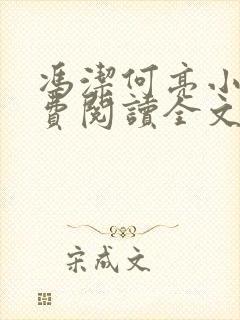 馮潔何亮小
費閱讀全文
宋成文